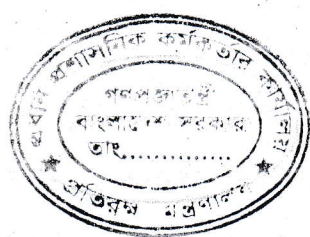 প্রধান প্রশাসনিক কর্মকর্তার কার্যালয়
গণপ্রজাতন্ত্রী
বাংলাদেশ সরকার
তাং...............
প্রতিরক্ষা মন্ত্রণালয়